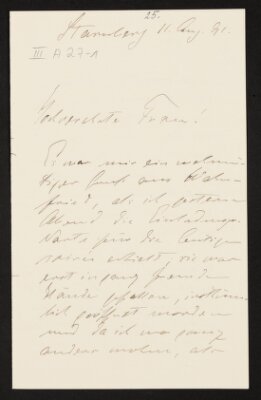 25.
Starnberg 11. Aug. 91.
III A 27-1
Hochverehrte Frau!
Es war mir ein wehmü-
tiger Gruß aus Wahn-
fried, als ich gestern
Abend die Einladungs-
karte für die heutige
soirée erhielt, sie war
erst in ganz fremde
Hände gefallen, irrthüm-
lich geöffnet worden
und da ich wo ganz
anders wohne, als